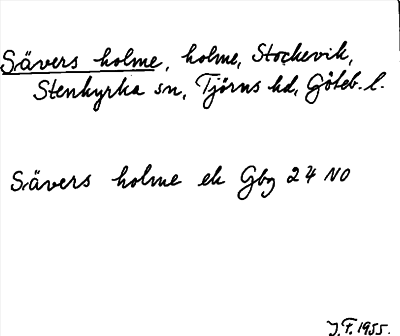 Sävers holme, holme, Stockevik,
Stenkyrka sn, Tjörns hd, Göteb. l.
Sävers holme ek Gbg 24 NO
J.F. 1955.